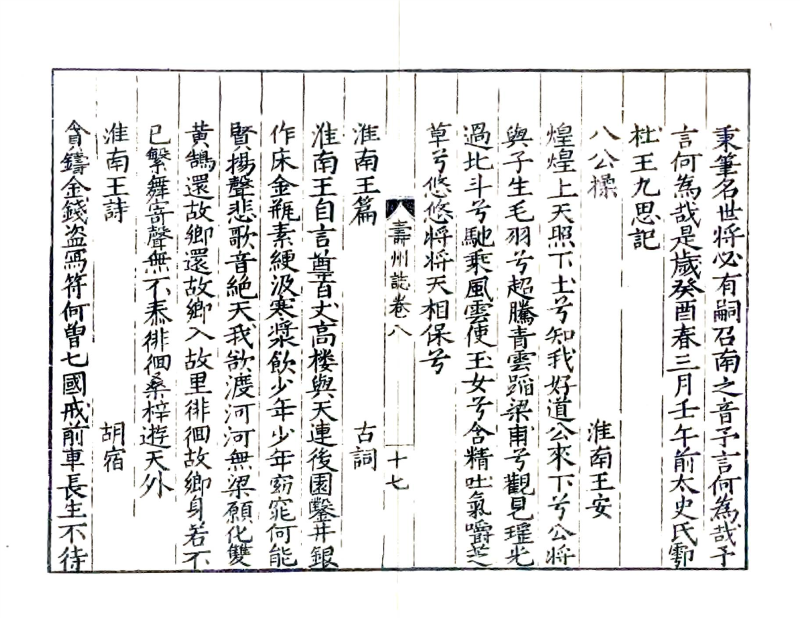 秉筆名世將必有嗣召南之音予言何為哉予
言何為哉是歲癸酉春三月壬午前太史氏鄠
杜王九思記
八公操 淮南王安
煌煌上天照下土兮知我好道公來下兮公將
與子生毛羽兮超騰青雲蹈梁甫兮觀見瑤光
過北斗兮馳乘風雲使玉女兮含精吐氣嚼芝
草兮悠悠將將天相保兮
壽州誌卷八 十七
淮南王篇 古詞
淮南王自言尊百丈高楼與天連後園鑿井銀
作床金瓶素綆汲寒漿飲少年少年窈窕何能
賢揚聲悲歌音絕天我欲渡河河無梁願化雙
黃鵠還故鄉還故鄉入故里徘徊故鄉身若不
已繁舞寄聲無不泰徘徊桑梓遊天外
淮南王詩 胡宿
貪鑄金錢盜寫符何曾七國戒前車長生不待